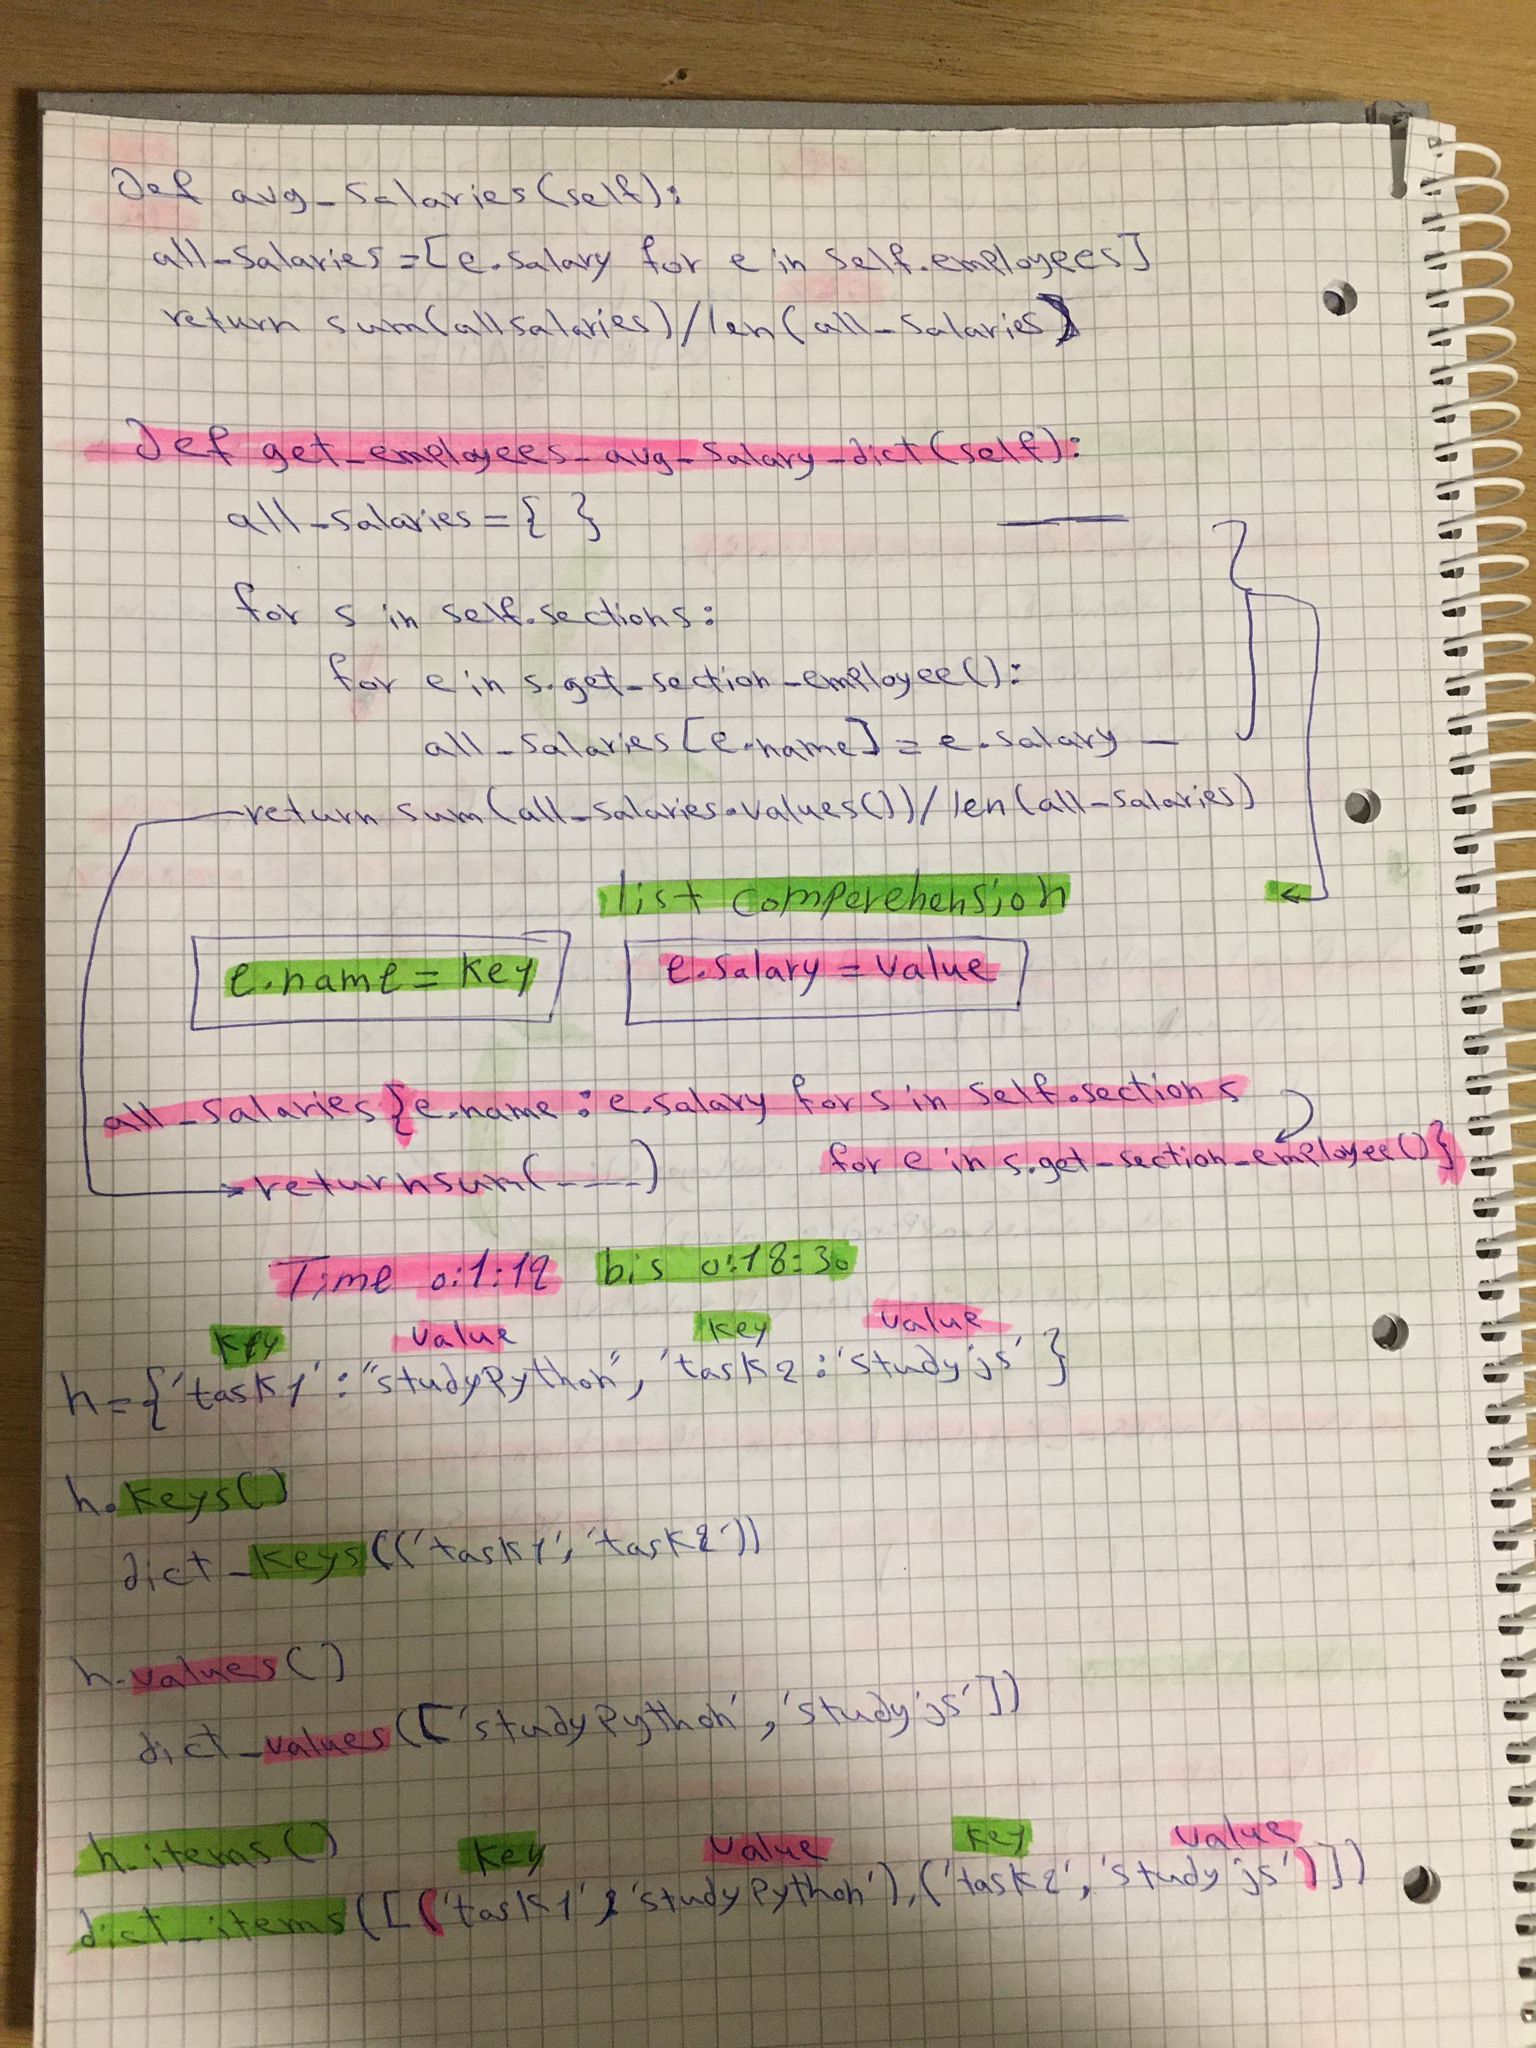 Def avg_salaries(self):
all_salaries=[e.salary for e in self.employees]
return sum(allsalaries)/len(all_salaries)
Def get_employees_avg_salary_dict(self):
all_salaries={ }
for s in self.sections:
for e in s.get_section_employee():
all_salaries[e.name]=e.salary
return sum(all_salaries.values())/len(all_salaries)
list comperehension
e.name=key
e.salary=value
all_salaries{e.name:e.salary for s in self.sections
for e in s.get_section_employee()}
return sum(____)
Time 0:1:19 bis 0:18:30
key value key value
h={'task1':"studyPython", 'task2:'studyjs'}
h.keys()
dict_keys(('task1','task2'))
h.values()
dict_values(['studyPython','studyjs'])
h.items() key value key value
dict_items([('task1','studyPython'),('task2','studyjs')])